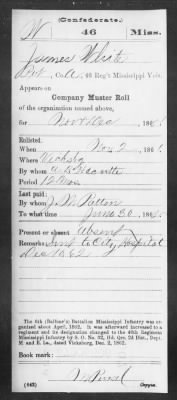 (Confederate.)
W 46 Miss.
James White
Pvt, Co. A, 46 Reg't Mississippi Vols.
Appears on
Company Muster Roll
of the organization named above,
for Nov & Dec, 186
Enlisted:
When Nov 2, 186
Where Vicksbg
By whom
Period 12 Mos
Last paid:
By whom J. M. Patton
To what time June 30, 186
Present or absent Absent
Remarks: Sent to City Hospital
Dec 10, 62
The 6th (Balfour's) Battalion Mississippi Infantry was organized about April, 1862. It was afterward increased to a regiment and its designation changed to the 46th Regiment Mississippi Infantry by S. O. No. 52, Hd. Qrs. 2d Dist., Dept. M and E La., dated Vicksburg, Dec. 2, 1862.
Book mark:
(642) Copyist.